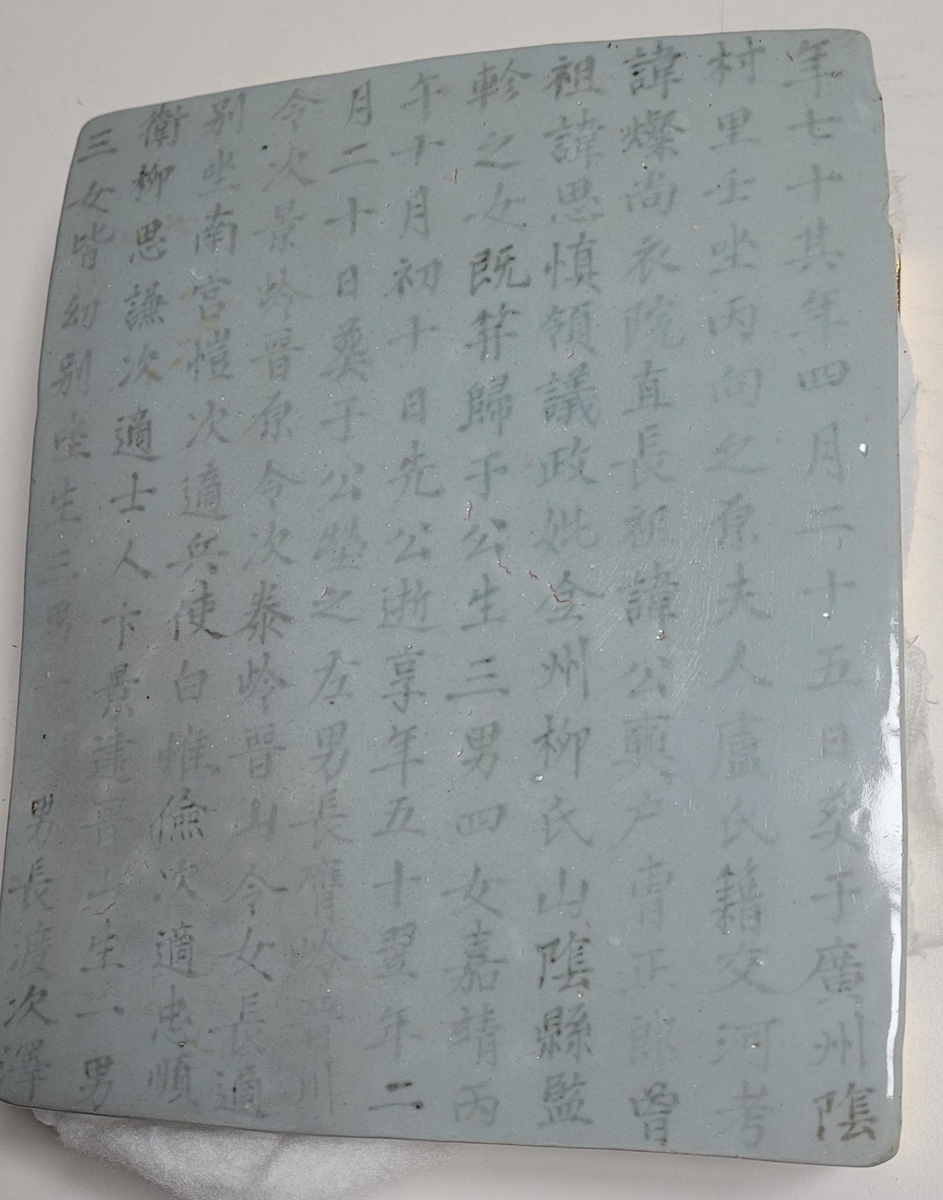 年七十其年四月二十五日葬于廣州陰
村里壬坐丙向之原夫人盧氏籍交河考
諱燦尚衣院直長祖諱公奭户曹正郎曾
祖諱思愼領議政妣全州柳氏山陰縣監
軫之女既笄歸于公生三男四女嘉靖丙
午十月初十日先公逝享年五十翌年二
月二十日葬于公塋之左男長膺岭晋川
令次景岭晋原令次泰岭晋山令女長適
别坐南宫愷次適兵使白惟儉次適忠順
衛柳思謙次適士人卞景建晋山生一男
三女皆幼别坐生三男一
男長渡次澤